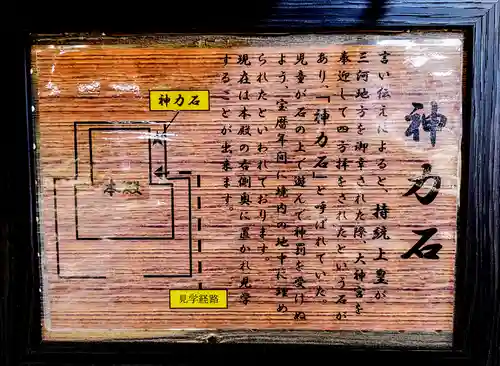 神力石
言い伝えによると、持統上皇が
三河地方を御幸された際、大神宮を
奉迎して四方拝をされたという石が
あり、「神力石」と呼ばれていた。
児童が石の上で遊んで神罰を受けぬ
よう、宝暦年間に境内の地中に埋め
られたといわれております。
現在は本殿の右側奥に置かれ見学
することが出来ます。
神力石
本殿
見学経路